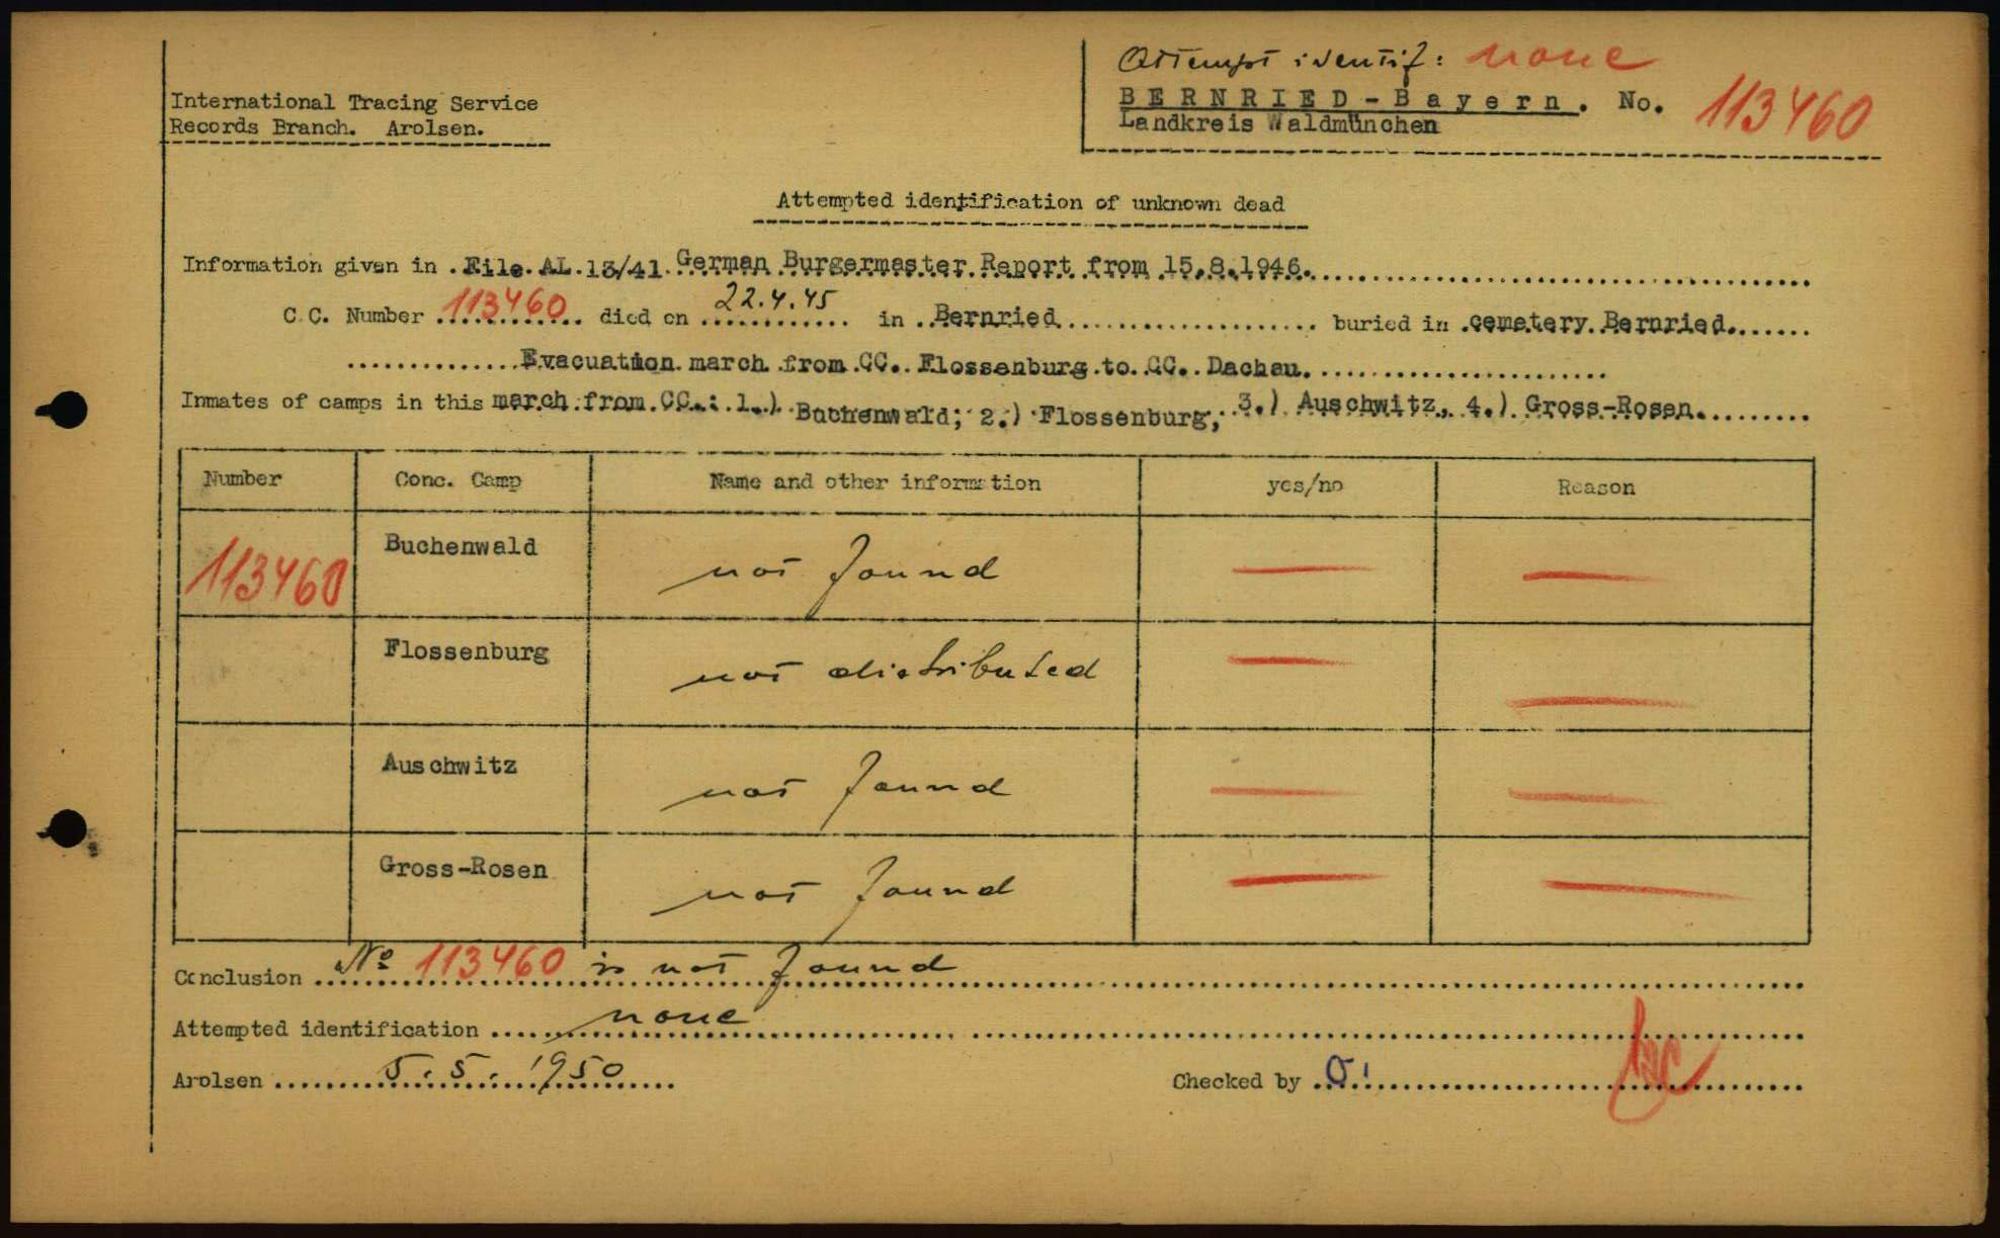 International Tracing Service
Records Branch. Arolsen.
Attempt identif: none
BERNRIED - Bayern. No. 113460
Landkreis Waldmünchen
Attempted identification of unknown dead
Information given in .File. AL. 13/41. German Burgermaster Report from 15.8.1946.
C.C. Number 113460 died on 22.4.45 in Bernried buried in cemetery Bernried.
Evacuation march from CC. Flossenburg to CC. Dachau.
Inmates of camps in this march from CC.: 1.) Buchenwald; 2.) Flossenburg; 3.) Auschwitz, 4.) Gross-Rosen.
Number Conc. Camp Name and other information yes/no Reason
113460 Buchenwald not found — —
Flossenburg not distributed — —
Auschwitz not found — —
Gross-Rosen not found — —
Conclusion No 113460 is not found
Attempted identification none
Arolsen 5. 5. 1950 Checked by